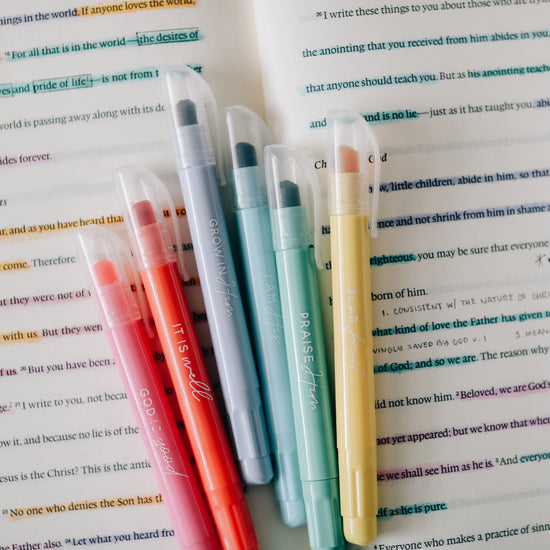 things in the world. If anyone loves the world,
16 For all that is in the world—the desires of
eyes and pride of life—is not from t
world is passing along with its
ides forever.
ur, and as you have heard that
come. Therefore
but they were not of
with us. But they went
of us. 20 But you have been
ge. 21 I write to you, not becau
ow it, and because no lie is of the
Jesus is the Christ? This is the antic
23 No one who denies the Son has
Father also. 24 Let what you heard
26 I write these things to you about those who are tryin
the anointing that you received from him abides in you,
that anyone should teach you. But as his anointing teach
and is no lie—just as it has taught you, abid
Ch God
w, little children, abide in him, so that
ence and not shrink from him in shame
righteous, you may be sure that everyone
born of him.
1. CONSISTENT W/ THE NATURE OF
what kind of love the Father has given to
SAVED BY GOD V. 1
of God; and so we are. The reason why
did not know him. 2 Beloved, we are God's
not yet appeared; but we know that when
se we shall see him as he is. 3 And everyone
self as he is pure.
4 Everyone who makes a practice of sinn
GOD IS good
IT IS well
GROW IN Him
I AM His
PRAISE Him
BEAR